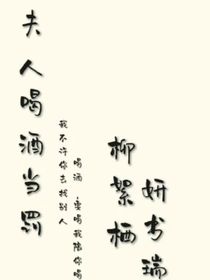 夫人喝酒当罚
我不许你去找别人
喝酒，要喝我陪你喝
柳絮栖
妍书瑞